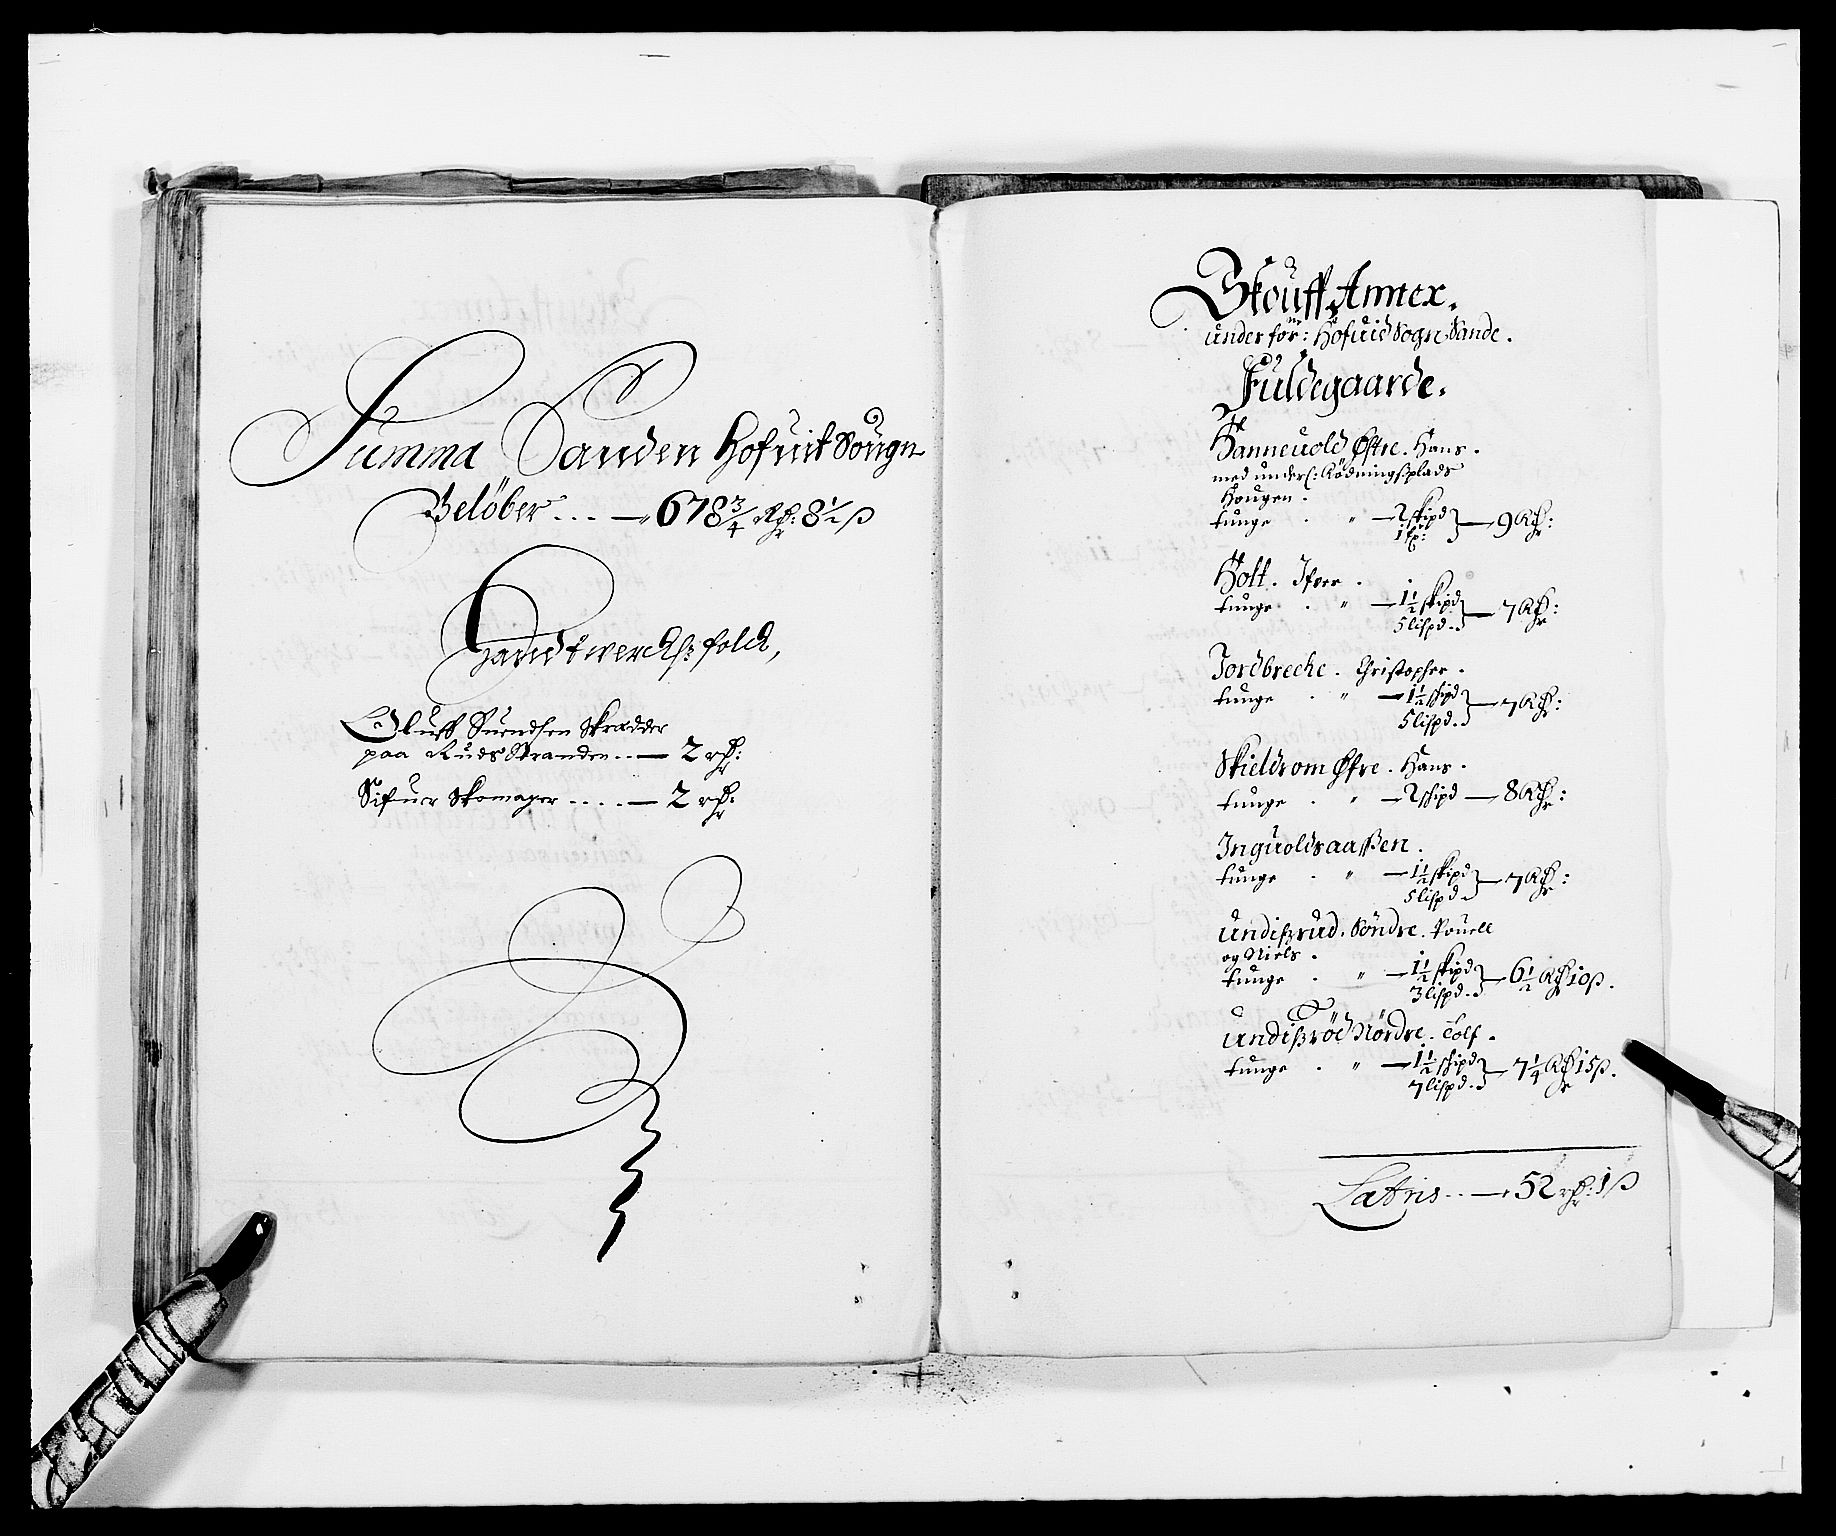 Summa Sanden Hofuit Sougn
Belöber... — 678 3/4 Rdr: 8 1/2 ß
Handtwerchs folck,
Oluff Suendsen Skrædder
paa Ruds Stranden.. — 2 rdr:
Sifuer Skomager .... — 2 rdr:
Skouff Annex.
under for: Hofuid Sogn Sande.
Fuldegaarde.
Hanneuold Østre. Hans.
med underl: Rödningsplads
Hougen.
tunge . " — 2 skipd
1 lp: } — 9 Rdr:
Holt. Ifuer.
tunge . " — 1 1/2 skipd
5 lispd. } — 7 Rdr:
Jordbreche. Christopher.
tunge . " — 1 1/2 skipd
5 lispd. } — 7 Rdr:
Skieldrom Østre. Hans.
tunge . " — 2 skipd — 8 Rdr:
Inguoldsaassen.
tunge . " — 1 1/2 skipd
5 lispd. } — 7 Rdr:
Undiszrud. Söndre. Pouell
og Niels.
tunge . " — 1 1/2 skipd
3 lispd. } — 6 1/2 Rdr 10 ß.
Undiszröd Nördre. Tolf.
tunge . " — 1 1/2 skipd
7 lispd. } — 7 1/4 Rdr 15 ß.
Latris.. — 52 rdr: 1 ß